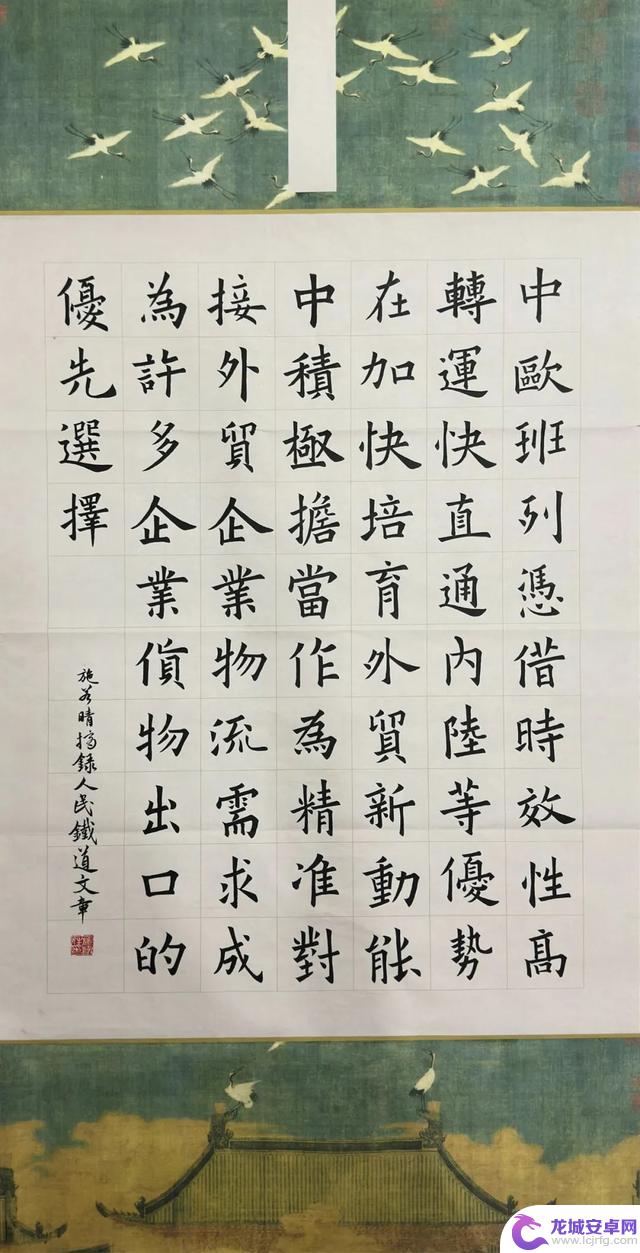 中歐班列憑借時效性高
轉運快直通內陸等優勢
在加快培育外貿新動能
中積極擔當作為精准對
接外貿企業物流需求成
為許多企業貨物出口的
優先選擇
施若晴摘錄人民鐵道文章
龙城安卓网
www.lcjrfg.com